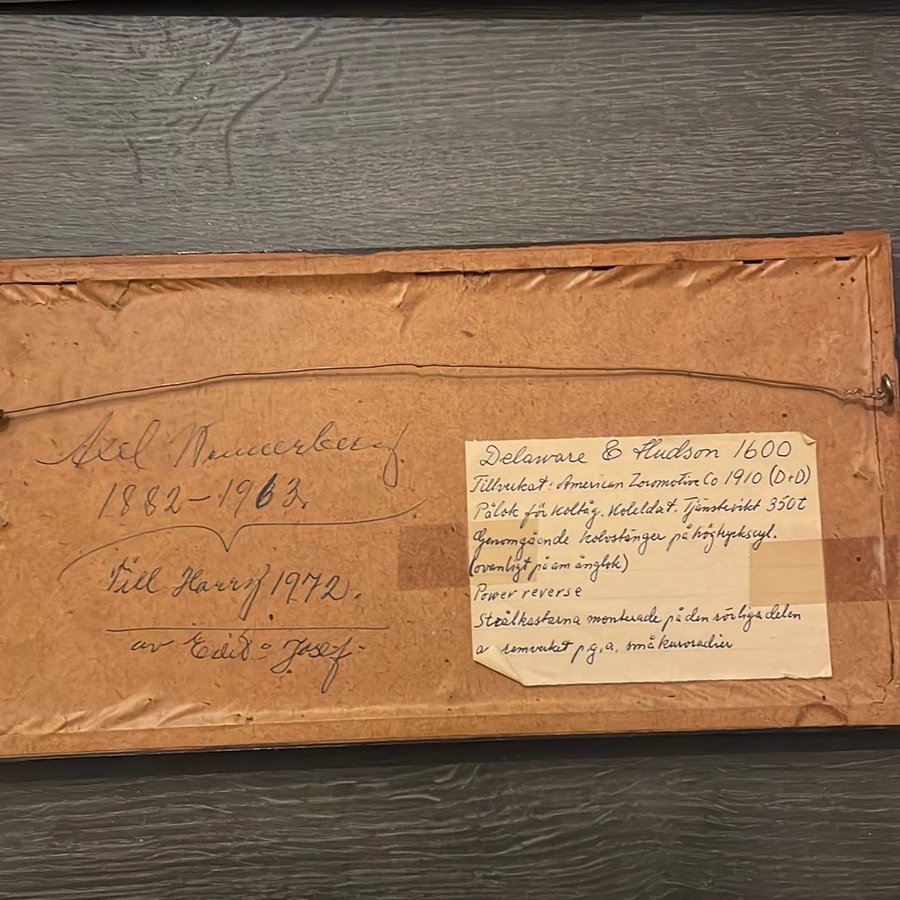 Axel Wennerberg.
1882-1963.
Till Harry 1972.
av Edit o Josef.
Delaware & Hudson 1600
Tillverkat: American Locomotive Co 1910 (D+D)
Pålok för koltåg. Koleldat. Tjänstevikt 350t
Genomgående kolvstänger på högtryckscyl.
(ovanligt på am ånglok)
Power reverse
Strålkastarna monterade på den rörliga delen
a ramverket p.g.a. små kurvradier